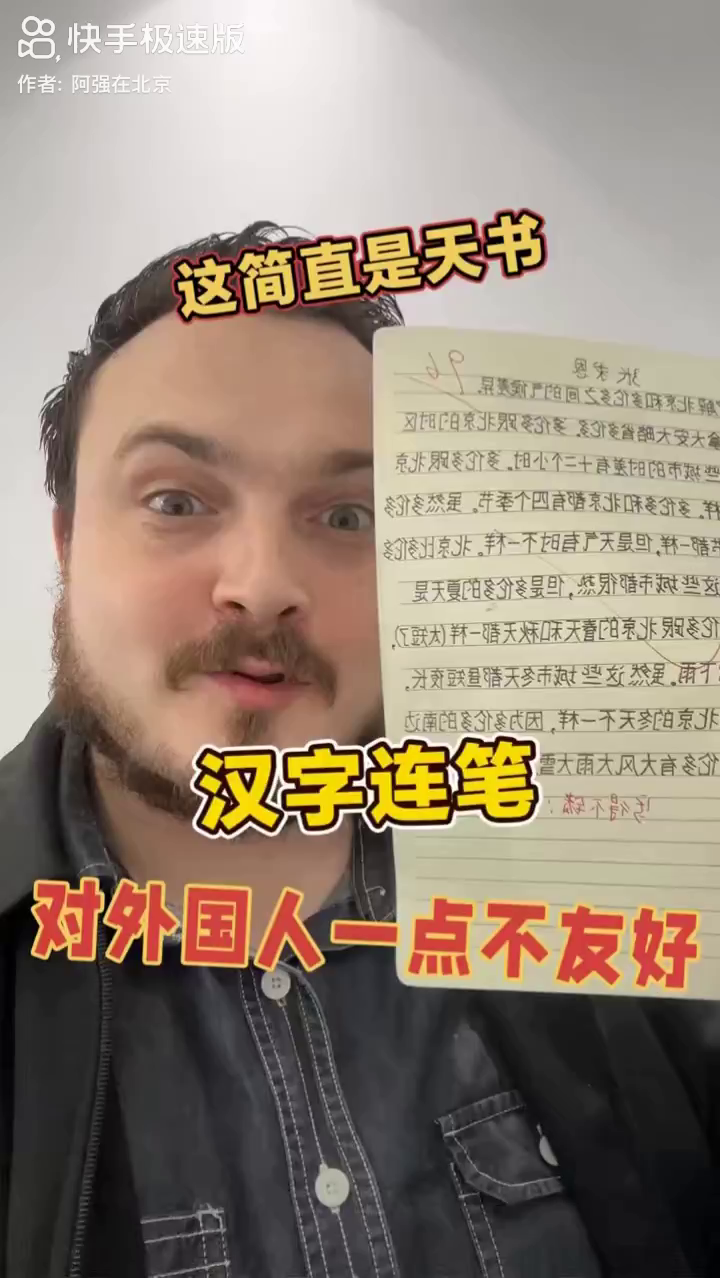 快手极速版
作者: 阿强在北京
这简直是天书
96
张求恩
解北京和多伦多之间的气候差异.
拿大安大略省多伦多。多伦多跟北京的时区
些城市的时差有十二个小时。多伦多跟北京
样。多伦多和北京都有四个季节。虽然多伦多
节都一样,但是天气有时不一样。北京比多伦多
这些城市都很热,但是多伦多的夏天是
伦多跟北京的春天和秋天都一样(太短了),
下雨。虽然这些城市冬天都昼短夜长。
北京的冬天不一样,因为多伦多的南边
伦多有大风大雨大雪
写得不错!
汉字连笔
对外国人一点不友好